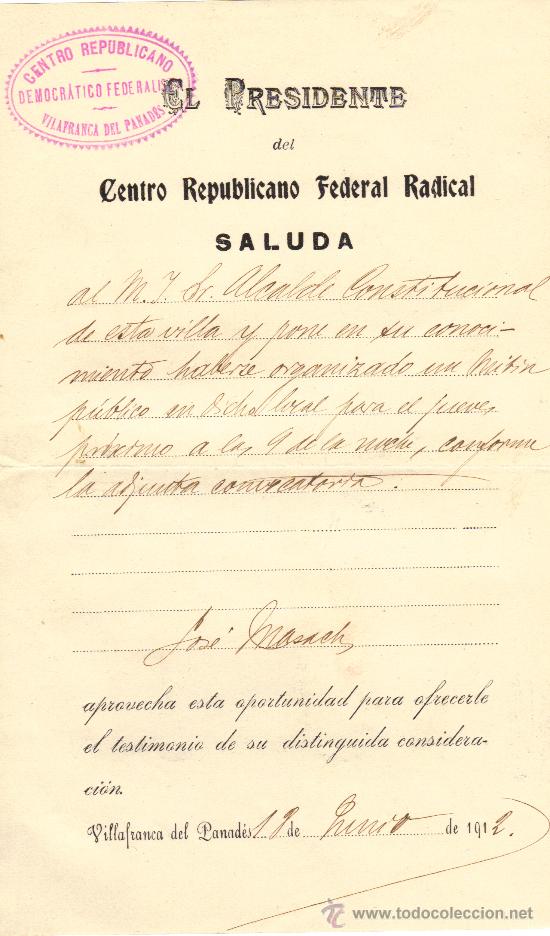 CENTRO REPUBLICANO
DEMOCRÁTICO FEDERALIS
VILAFRANCA DEL PANADÉS
EL PRESIDENTE
del
Centro Republicano Federal Radical
SALUDA
al M. I. Sr. Alcalde Constitucional
de esta villa y pone en su conoci-
miento haberse organizado un Mitin
público en dicho local para el jueves
próximo a las 9 de la noche, conforme
la adjunta convocatoria.
José Masach
aprovecha esta oportunidad para ofrecerle
el testimonio de su distinguida considera-
ción.
Villafranca del Panadés 18 de Junio de 1912.
todocoleccion
www.todocoleccion.net